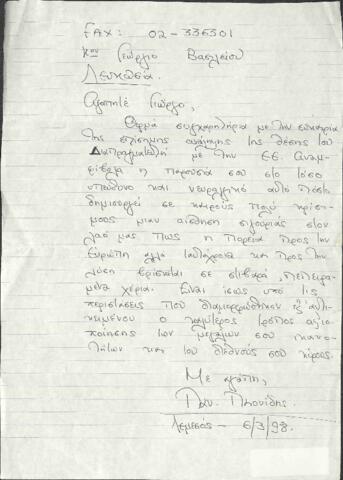 FAX: 02-336301
κον Γεώργιο Βασιλείου
Λευκωσία
Αγαπητέ Γιώργο,
Θερμά συγχαρητήρια με την ευκαιρία
της επίσημης ανάληψης της θέσης του
Διαπραγματευτή με την ΕΕ. Αναμ-
φίβολα η παρουσία σου στο τόσο
υπεύθυνο και νευραλγικό αυτό πόστο
δημιουργεί σε καιρούς πολύ κρίσι-
μους μιαν αίσθηση σιγουριάς στον
λαό μας πως η πορεία προς την
Ευρώπη αλλά ταυτόχρονα και προς την
λύση βρίσκεται σε στιβαρά, πεπειρα-
μένα χέρια. Είναι ίσως υπό τις
περιστάσεις που διαμορφώθηκαν εξ' αντι-
κειμένου ο καλύτερος τρόπος αξιο-
ποίησης των μεγάλων σου ικανο-
τήτων και του διεθνούς σου κύρους.
Με αγάπη,
Παν.
Λεμεσός - 6/3/98.